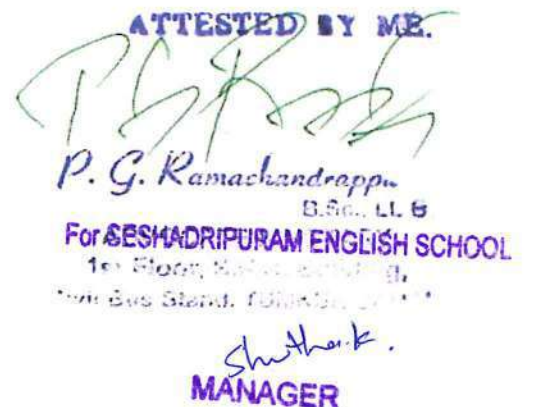 ATTESTED BY ME.
P. G. Ramachandrappa
B.Sc., LL B
For SESHADRIPURAM ENGLISH SCHOOL
1st Floor,
Bus Stand,
Shutha.k.
MANAGER